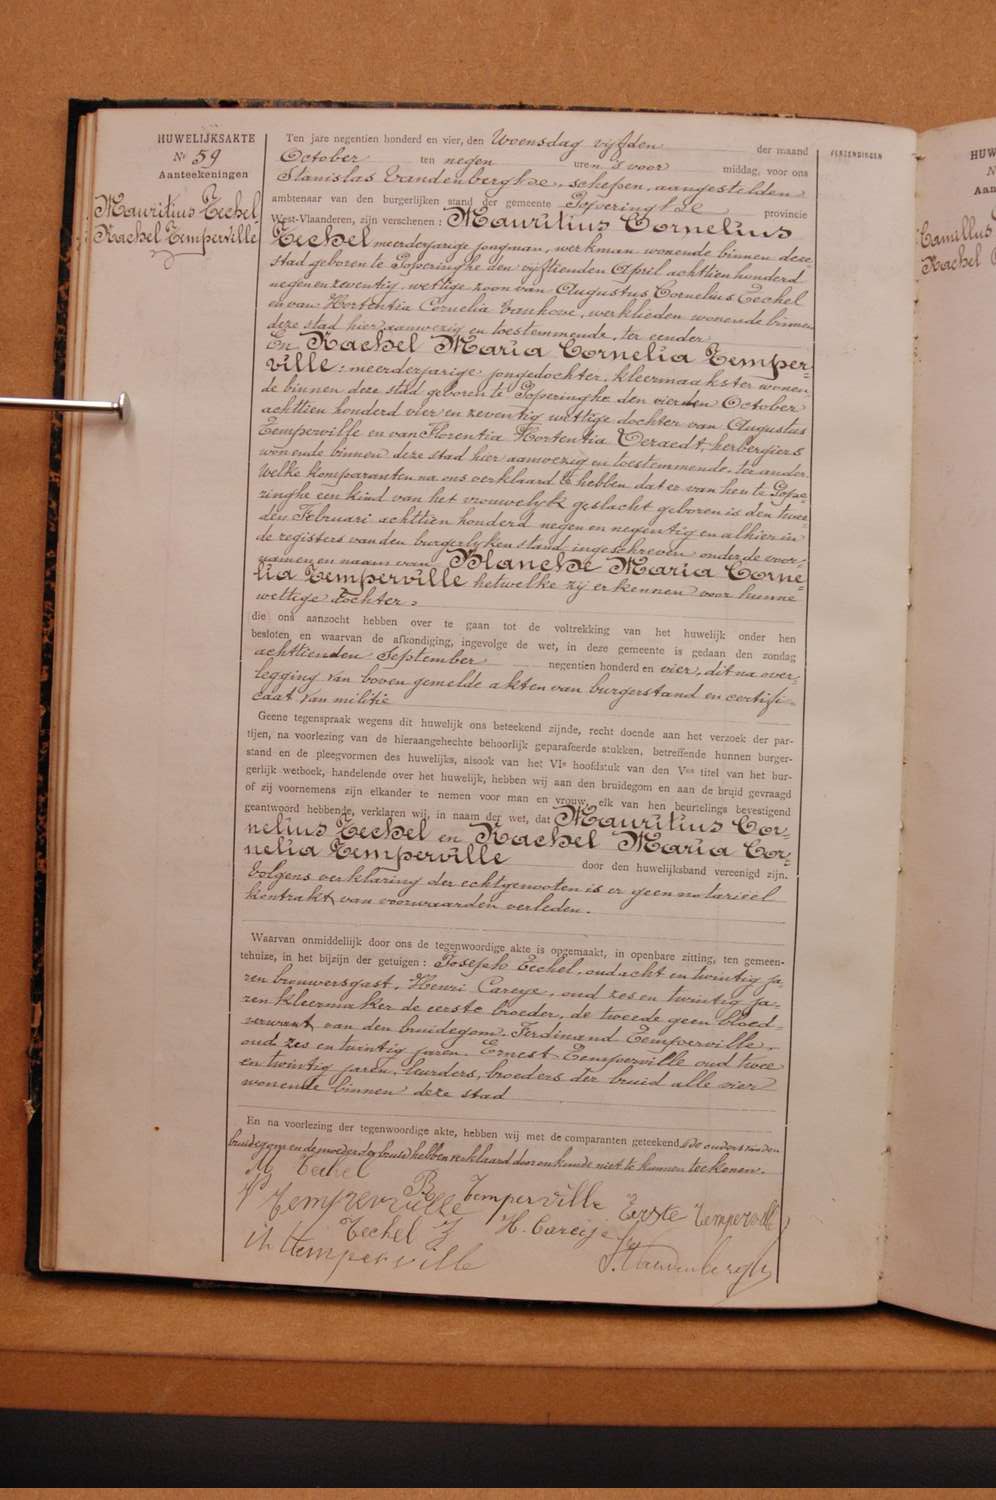 HUWELIJKSAKTE
Nr 59
Aanteekeningen
Mauritius Techel
Rachel Temperville
Ten jare negentien honderd en vier, den Woensdag vijfden der maand
October ten negen uren 's voor middag, voor ons
Stanislas Vandenberghe, schepen, aangestelden
ambtenaar van den burgerlijken stand der gemeente Poperinghe provincie
West-Vlaanderen, zijn verschenen: Mauritius Cornelius
Techel meerderjarige jongman, werkman wonende binnen deze
stad geboren te Poperinghe den vijftienden April achttien honderd
negen en zeventig, wettige zoon van Augustus Cornelius Techel
en van Hortentia Cornelia Vanhove, werklieden wonende binnen
deze stad hier aanwezig en toestemmende, ter eender
En Rachel Maria Cornelia Temper-
ville: meerderjarige jongedochter, kleermaakster wonen-
de binnen deze stad geboren te Poperinghe den vierden October
achttien honderd vier en zeventig wettige dochter van Augustus
Temperville en van Florentia Hortentia Veraedt, herbergiers
wonende binnen deze stad hier aanwezig en toestemmende, ter ander
Welke komparanten na ons verklaard te hebben dat er van hen te Pope-
ringhe een kind van het vrouwelijk geslacht geboren is den twee-
den Februari achttien honderd negen en negentig en alhier in
de registers van den burgerlyken stand ingeschreven onder de voor-
namen en naam van Blanche Maria Corne-
lia Temperville hetwelke zij erkennen voor hunne
wettige dochter.
die ons aanzocht hebben over te gaan tot de voltrekking van het huwelijk onder hen
besloten en waarvan de afkondiging, ingevolge de wet, in deze gemeente is gedaan den zondag
achttienden September negentien honderd en vier, dit na over-
legging van boven gemelde akten van burgerstand en certifi-
caat van militie
Geene tegenspraak wegens dit huwelijk ons beteekend zijnde, recht doende aan het verzoek der par-
tijen, na voorlezing van de hieraangehechte behoorlijk geparafeerde stukken, betreffende hunnen burger-
stand en de pleegvormen des huwelijks, alsook van het VIe hoofdstuk van den Ven titel van het bur-
gerlijk wetboek, handelende over het huwelijk, hebben wij aan den bruidegom en aan de bruid gevraagd
of zij voornemens zijn elkander te nemen voor man en vrouw, elk van hen beurtelings bevestigend
geantwoord hebbende, verklaren wij, in naam der wet, dat Mauritius Cor-
nelius Techel en Rachel Maria Cor-
nelia Temperville door den huwelijksband vereenigd zijn.
Volgens verklaring der echtgenooten is er geen notarieel
kontrakt van voorwaarden verleden.
Waarvan onmiddellijk door ons de tegenwoordige akte is opgemaakt, in openbare zitting, ten gemeen-
tehuize, in het bijzijn der getuigen: Joseph Techel, oud acht en twintig ja-
ren brouwersgast, Henri Careye, oud zes en twintig ja-
ren kleermaker de eerste broeder, de tweede geen bloed-
verwant van den bruidegom. Ferdinand Temperville,
oud zes en twintig jaren. Ernest Temperville oud twee
en twintig jaren, leurders, broeders der bruid alle vier
wonende binnen deze stad
En na voorlezing der tegenwoordige akte, hebben wij met de comparanten geteekend, de ouders van den
bruidegom en de moeder der bruid hebben verklaard door onkunde niet te kunnen teekenen.
M Techel
R Temperville
Temperville
Erneste Temperville
Techel J
H. Careije
Temperville
S. Vandenberghe
VERZENDINGEN
HUW
N
Aan
Camillus
Rachel